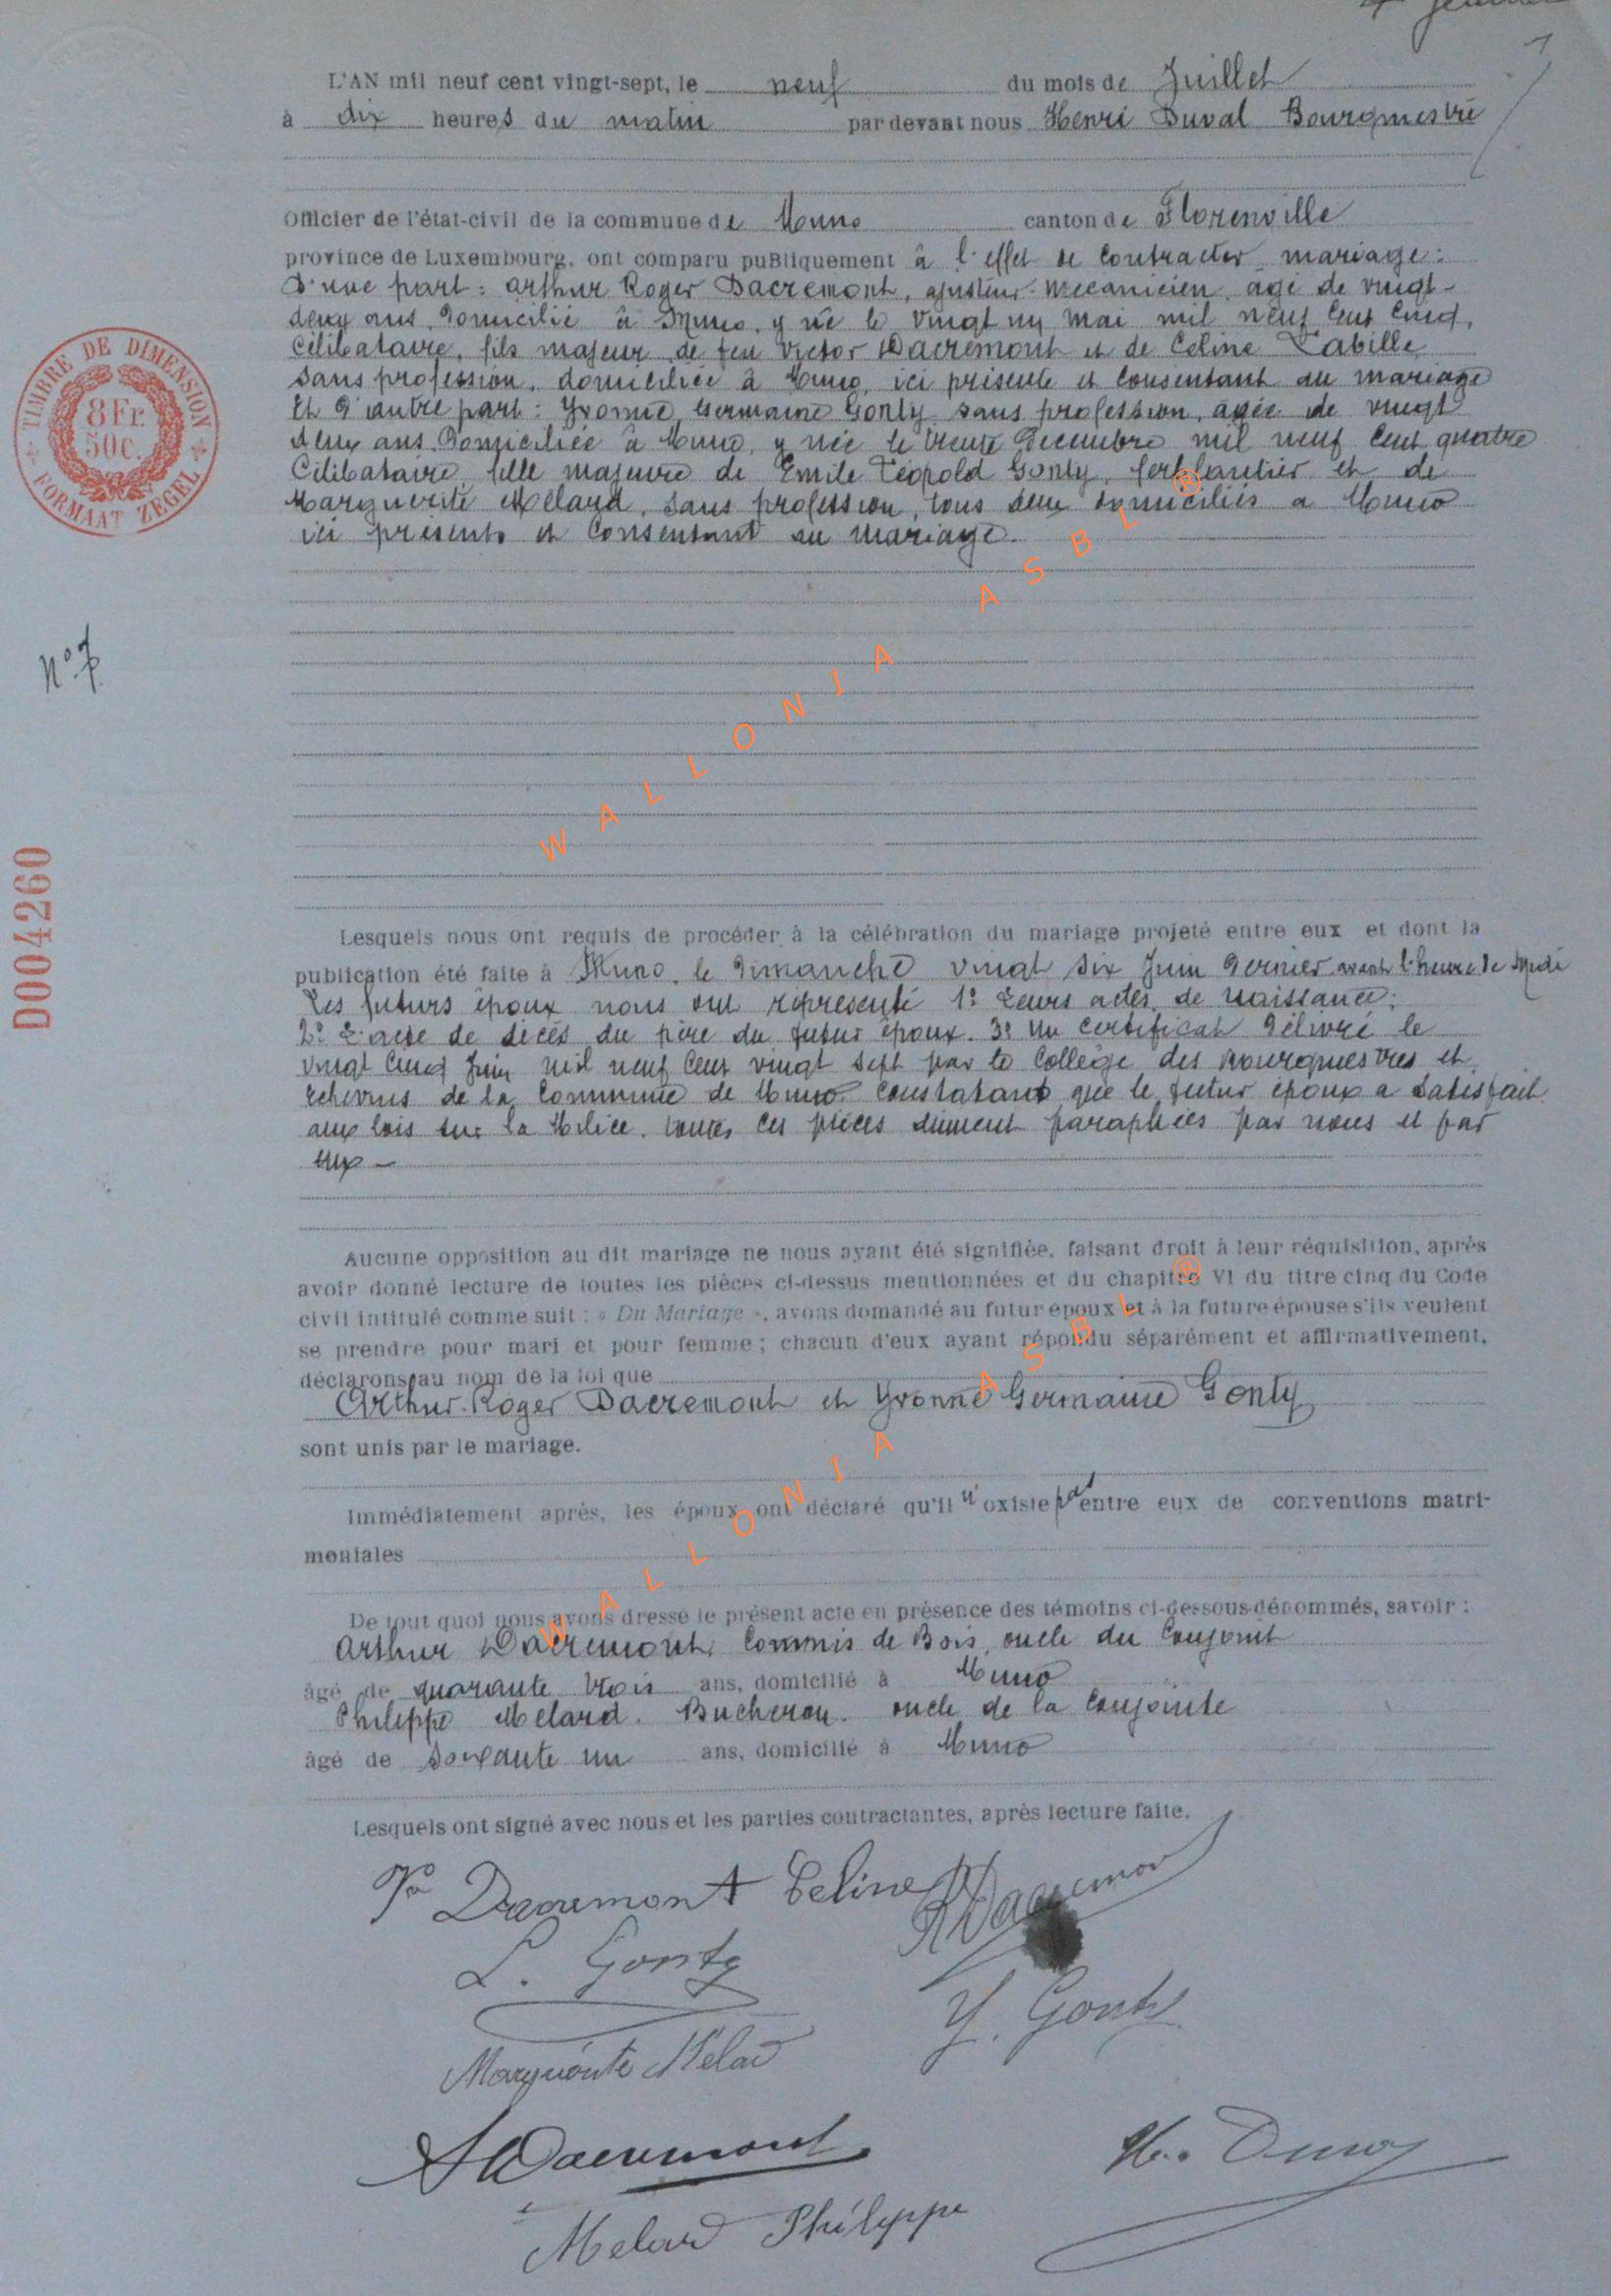 L'AN mil neuf cent vingt-sept, le neuf du mois de Juillet
à dix heures du matin par devant nous Henri Duval Bourgmestre
Officier de l'état-civil de la commune de Muno canton de Florenville
province de Luxembourg, ont comparu publiquement à l'effet de contracter mariage:
D'une part: Arthur Roger Dacremont, ajusteur-mecanicien, agé de vingt-
deux ans, domicilié à Muno, y né le vingt un Mai mil neuf cent cinq,
Célibataire, fils majeur de feu Victor Dacremont et de Céline Labille
sans profession, domiciliée à Muno, ici présente et consentant au mariage
Et d'autre part: Yvonne Germaine Gonty sans profession, agée de vingt
deux ans. Domiciliée à Muno, y née le trente Décembre mil neuf cent quatre
Célibataire, fille majeure de Emile Léopold Gonty, ferblantier et de
Marguerite Mélard, sans profession, tous deux domiciliés à Muno
ici présents et consentant au mariage.
TIMBRE DE DIMENSION
8Fr.
50c.
FORMAAT ZEGEL
N° 7
D004260
WALLONIA ASBL ®
Lesquels nous ont requis de procéder à la célébration du mariage projeté entre eux et dont la
publication été faite à Muno, le Dimanche vingt six Juin dernier, avant l'heure de Midi
Les futurs époux nous ont représenté 1° Leurs actes de naissance;
2° L'acte de décès du père du futur époux. 3° Un certificat délivré le
vingt cinq Juin mil neuf cent vingt sept par le Collège des Bourgmestres et
Echevins de la Commune de Muno constatant que le futur époux a satisfait
aux lois sur la Milice. toutes ces pièces dûment paraphées par nous et par
eux —
Aucune opposition au dit mariage ne nous ayant été signifiée, faisant droit à leur réquisition, après
avoir donné lecture de toutes les pièces ci-dessus mentionnées et du chapitre VI du titre cinq du Code
civil intitulé comme suit : « Du Mariage », avons domandé au futur époux et à la future épouse s'ils veulent
se prendre pour mari et pour femme ; chacun d'eux ayant répondu séparément et affirmativement,
déclarons au nom de la loi que
Arthur Roger Dacremont et Yvonne Germaine Gonty
sont unis par le mariage.
Immédiatement après, les époux ont déclaré qu'il n'existe pas entre eux de conventions matri-
moniales
De tout quoi nous avons dressé le présent acte en présence des témoins ci-dessous dénommés, savoir :
Arthur Dacremont, Commis de Bois, oncle du Conjoint
âgé de quarante trois ans, domicilié à Muno
Philippe Mélard. Bucheron. oncle de la Conjointe
âgé de soixante un ans, domicilié à Muno
WALLONIA ASBL ®
Lesquels ont signé avec nous et les parties contractantes, après lecture faite.
Dacremont Celine
L. Gonty
Y. Gonty
Marguerite Mélard
A Dacremont
H. Duval
Melard Philippe